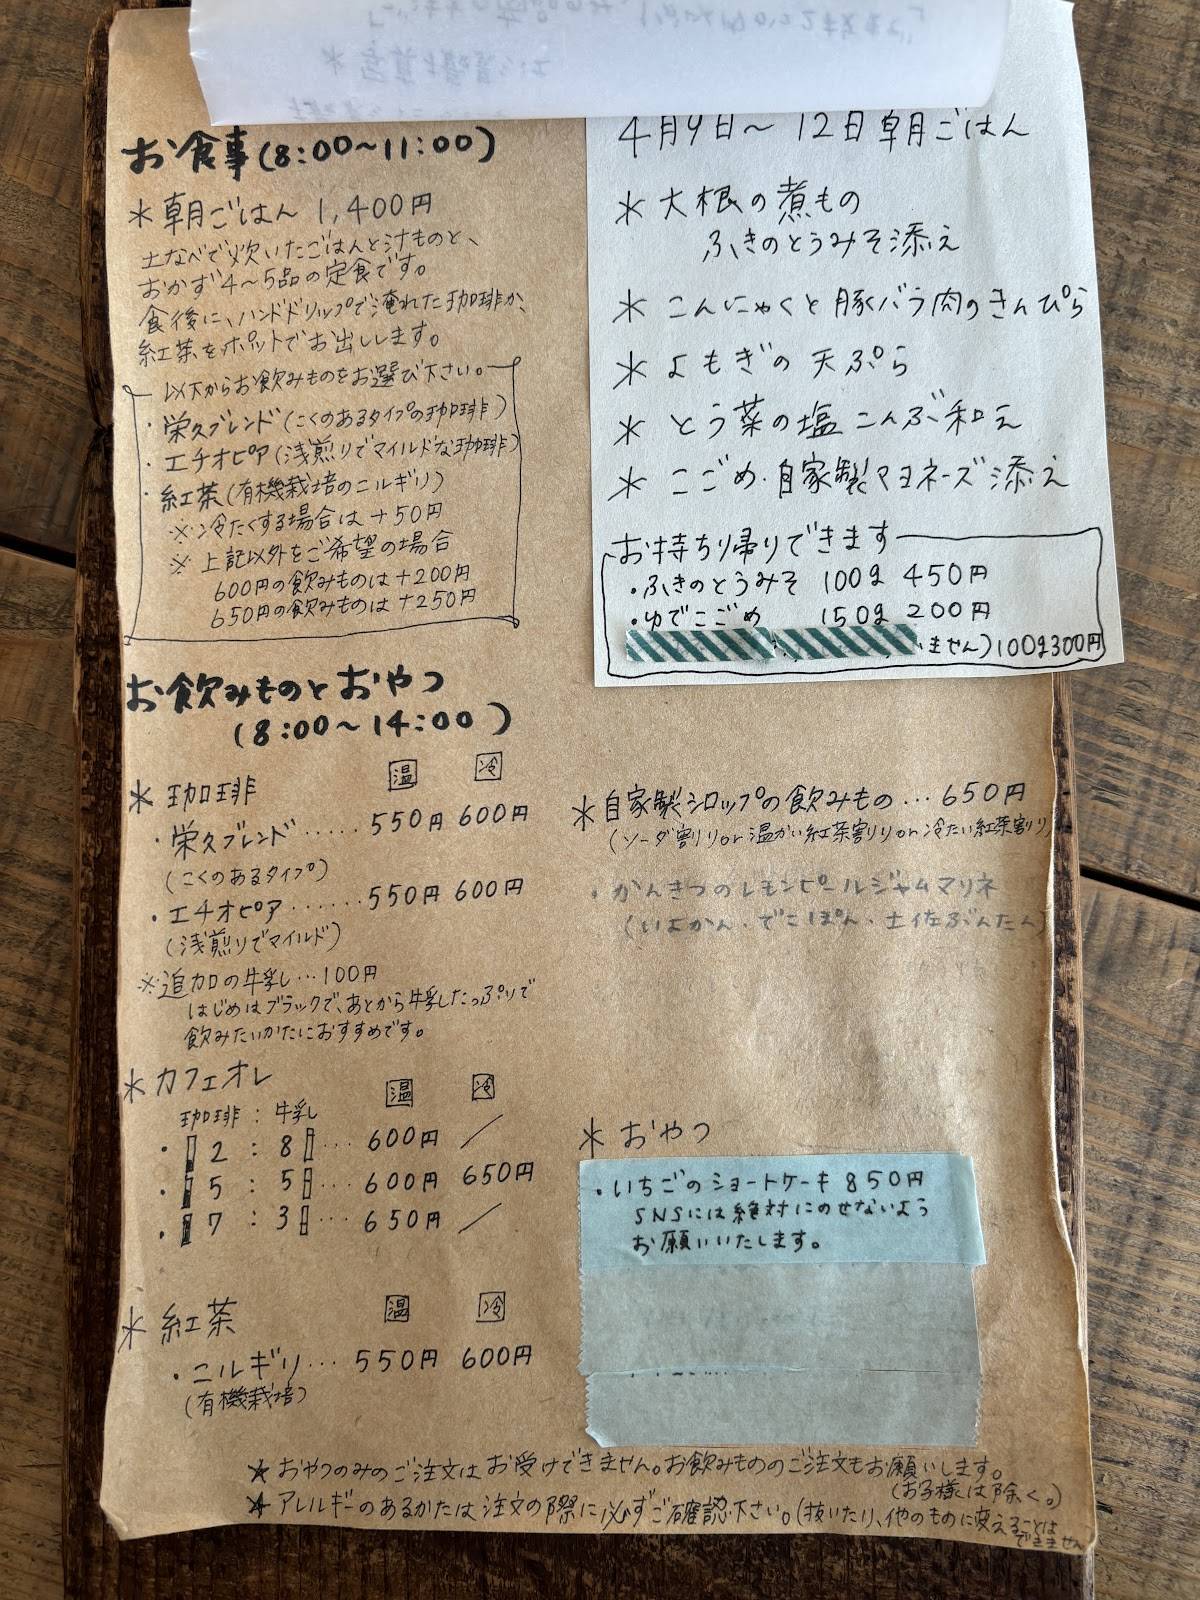 お食事(8:00〜11:00)
＊朝ごはん 1,400円
土なべで炊いたごはんと汁ものと、
おかず4〜5品の定食です。
食後に、ハンドドリップで淹れた珈琲か、
紅茶をポットでお出しします。
以下からお飲みものをお選び下さい。
・栄久ブレンド(こくのあるタイプの珈琲)
・エチオピア(浅煎りでマイルドな珈琲)
・紅茶(有機栽培のニルギリ)
※冷たくする場合は+50円
※上記以外をご希望の場合
600円の飲みものは+200円
650円の飲みものは+250円
4月9日〜12日朝ごはん
＊大根の煮もの
ふきのとうみそ添え
＊こんにゃくと豚バラ肉のきんぴら
＊よもぎの天ぷら
＊とう菜の塩こんぶ和え
＊こごめ・自家製マヨネーズ添え
お持ち帰りできます
・ふきのとうみそ 100g 450円
・ゆでこごめ 150g 200円
ません)100g300円
お飲みものとおやつ
(8:00〜14:00)
＊珈琲 温 冷
・栄久ブレンド.....550円 600円
(こくのあるタイプ)
・エチオピア......550円 600円
(浅煎りでマイルド)
※追加の牛乳...100円
はじめはブラックで、あとから牛乳たっぷりで
飲みたいかたにおすすめです。
＊カフェオレ 温 冷
珈琲:牛乳
・2:8...600円 ／
・5:5...600円 650円
・7:3...650円 ／
＊紅茶 温 冷
・ニルギリ...550円 600円
(有機栽培)
＊自家製シロップの飲みもの...650円
(ソーダ割りor温かい紅茶割りor冷たい紅茶割り)
・かんきつのレモンピールジャムマリネ
(いよかん・でこぽん・土佐ぶんたん)
＊おやつ
・いちごのショートケーキ850円
SNSには絶対にのせないよう
お願いいたします。
★おやつのみのご注文はお受けできません。お飲みもののご注文もお願いします。
(お子様は除く。)
★アレルギーのあるかたは注文の際に必ずご確認下さい。(抜いたり、他のものに変えることは
できません